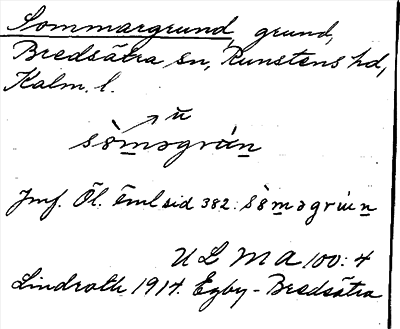 Sommargrund, grund,
Bredsätra sn, Runstens hd,
Kalm. l.
ū
sòməgrún
Jmf. Öl. Eml sid 382: sòməgrún
ULMA 100:4
Lindroth 1914. Egby-Bredsätra